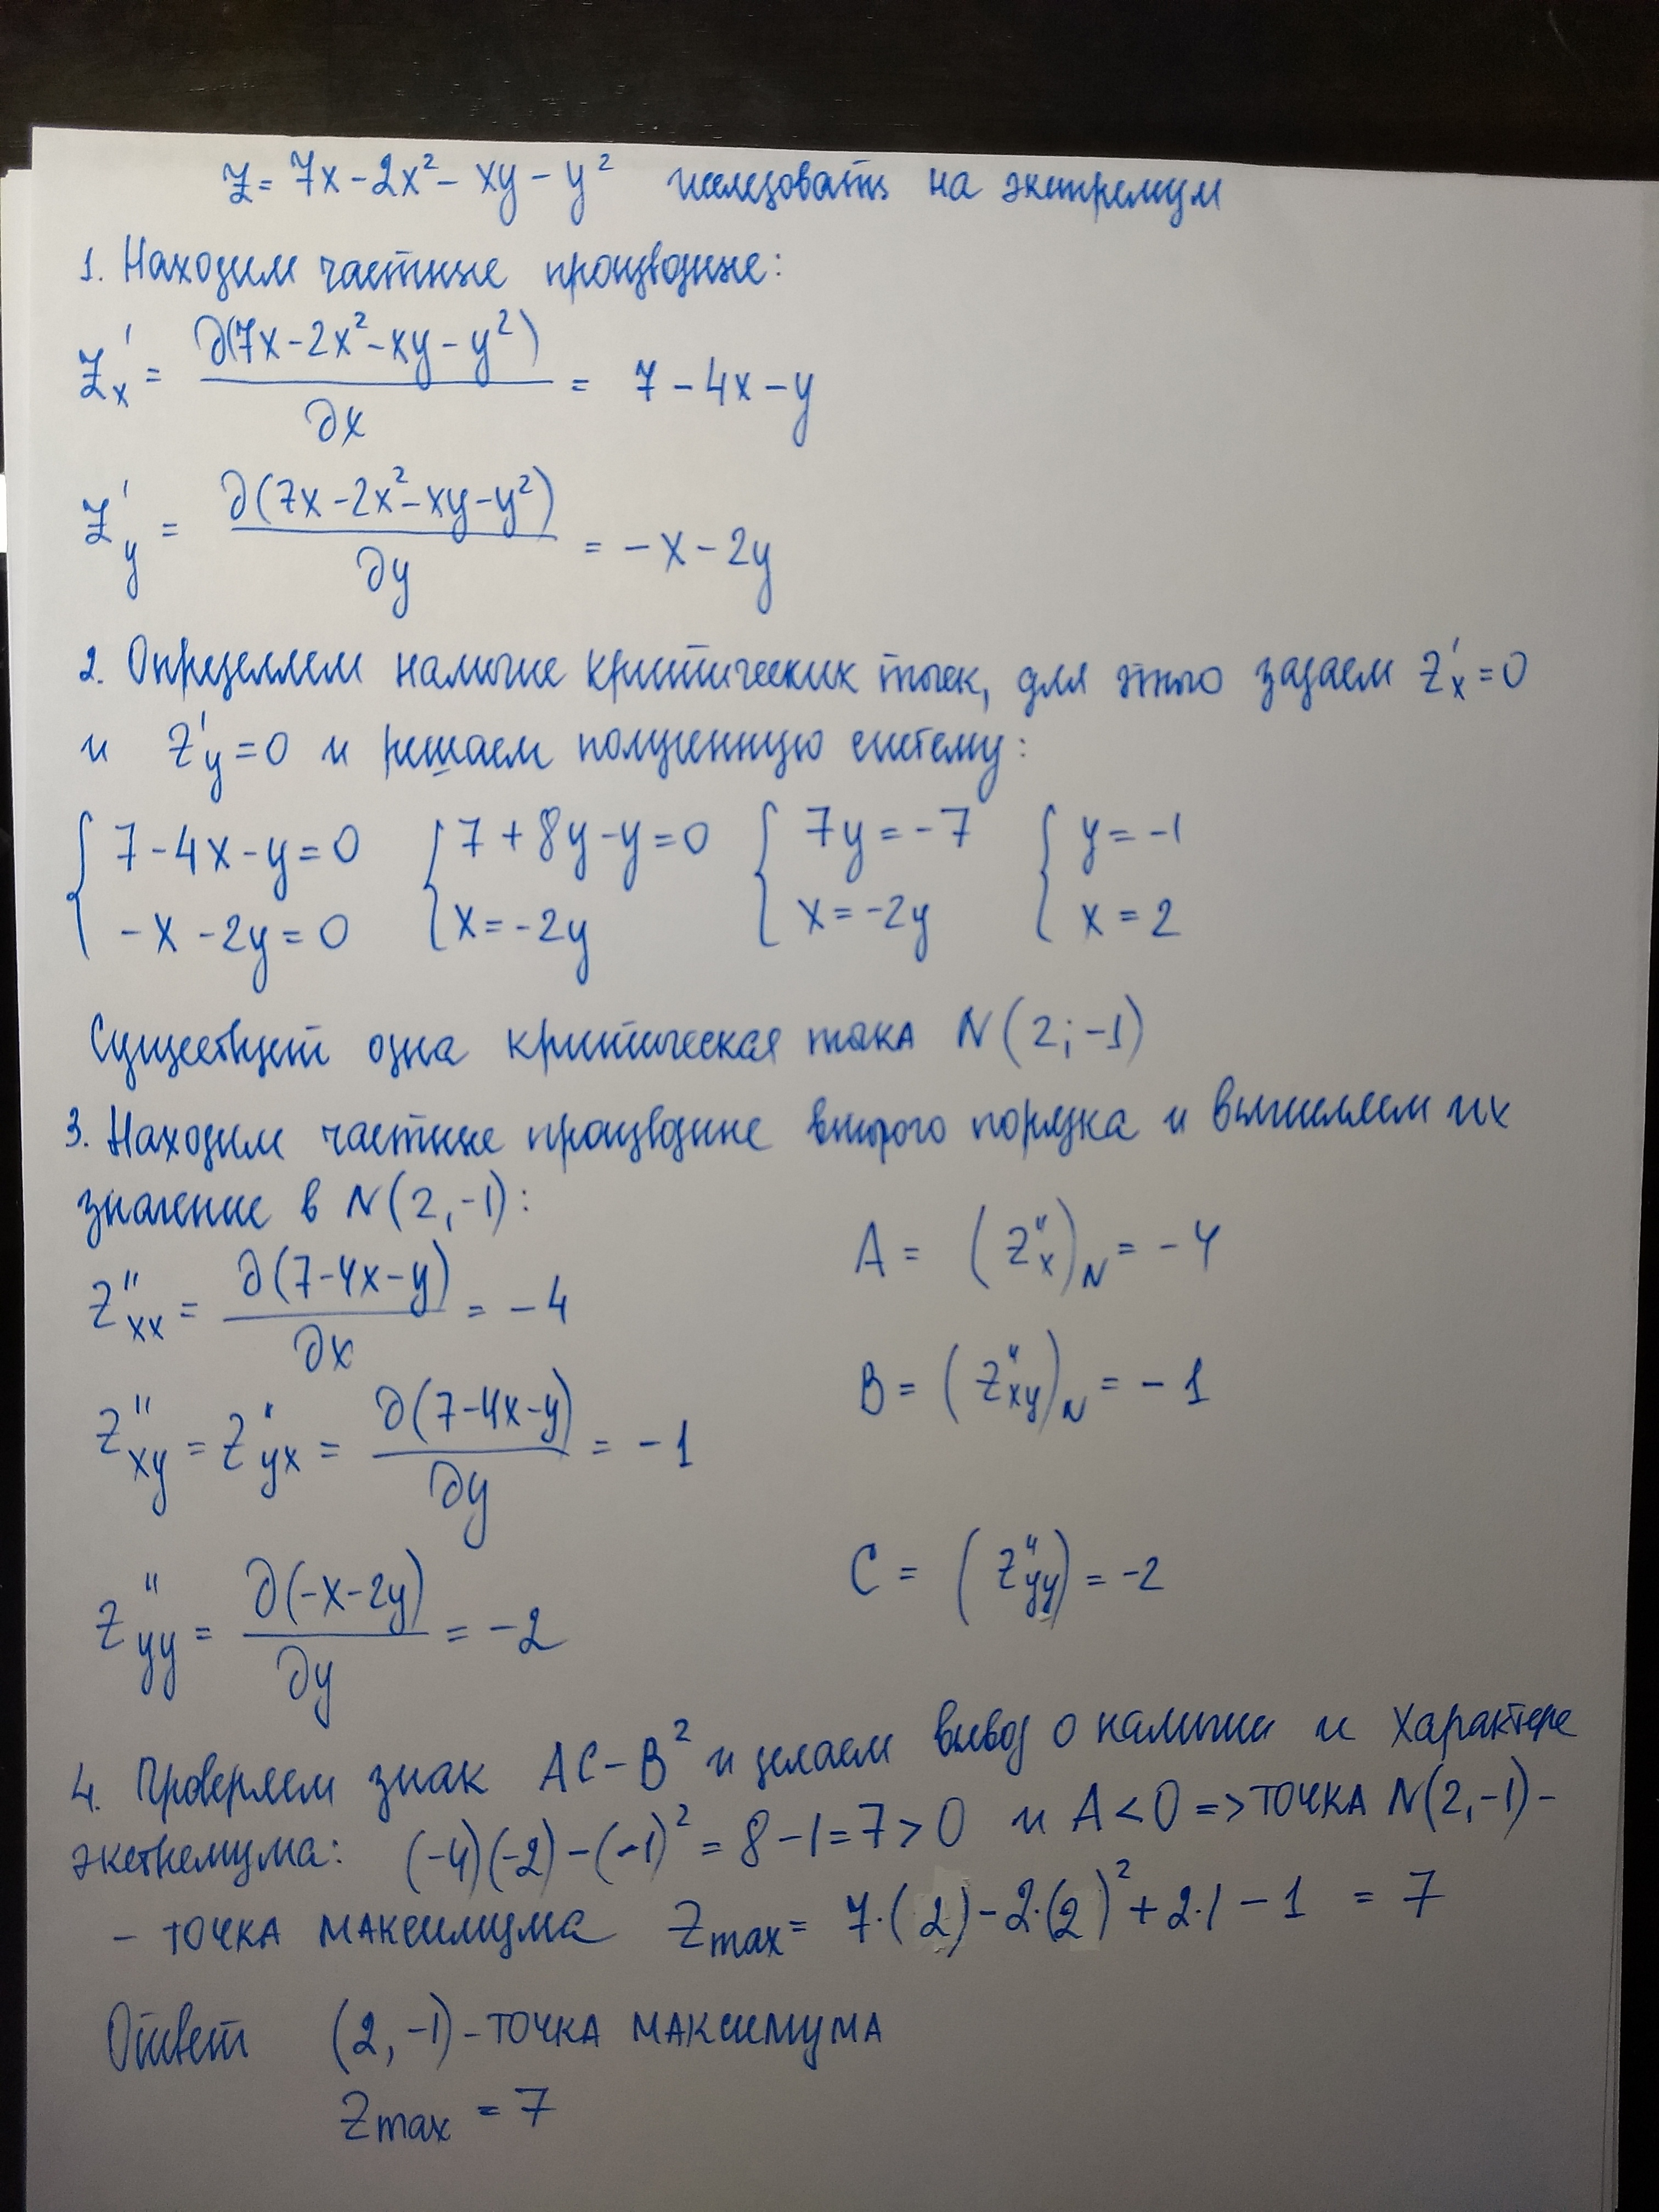 z = 7x - 2x² - xy - y² исследовать на экстремум
1. Находим частные производные:
z'x = ∂(7x - 2x² - xy - y²) / ∂x = 7 - 4x - y
z'y = ∂(7x - 2x² - xy - y²) / ∂y = -x - 2y
2. Определяем наличие критических точек, для этого задаем z'x = 0
и z'y = 0 и решаем полученную систему:
{ 7 - 4x - y = 0 { 7 + 8y - y = 0 { 7y = -7 { y = -1
-x - 2y = 0 x = -2y x = -2y x = 2
Существует одна критическая точка N(2; -1)
3. Находим частные производные второго порядка и вычисляем их
значение в N(2, -1):
z''xx = ∂(7 - 4x - y) / ∂x = -4 A = (z''x)N = -4
z''xy = z''yx = ∂(7 - 4x - y) / ∂y = -1 B = (z''xy)N = -1
z''yy = ∂(-x - 2y) / ∂y = -2 C = (z''yy) = -2
4. Проверяем знак AC - B² и делаем вывод о наличии и характере
экстремума: (-4)(-2) - (-1)² = 8 - 1 = 7 > 0 и A < 0 => точка N(2, -1) -
- точка максимума zmax = 7·(2) - 2·(2)² + 2·1 - 1 = 7
Ответ (2, -1) - точка максимума
zmax = 7